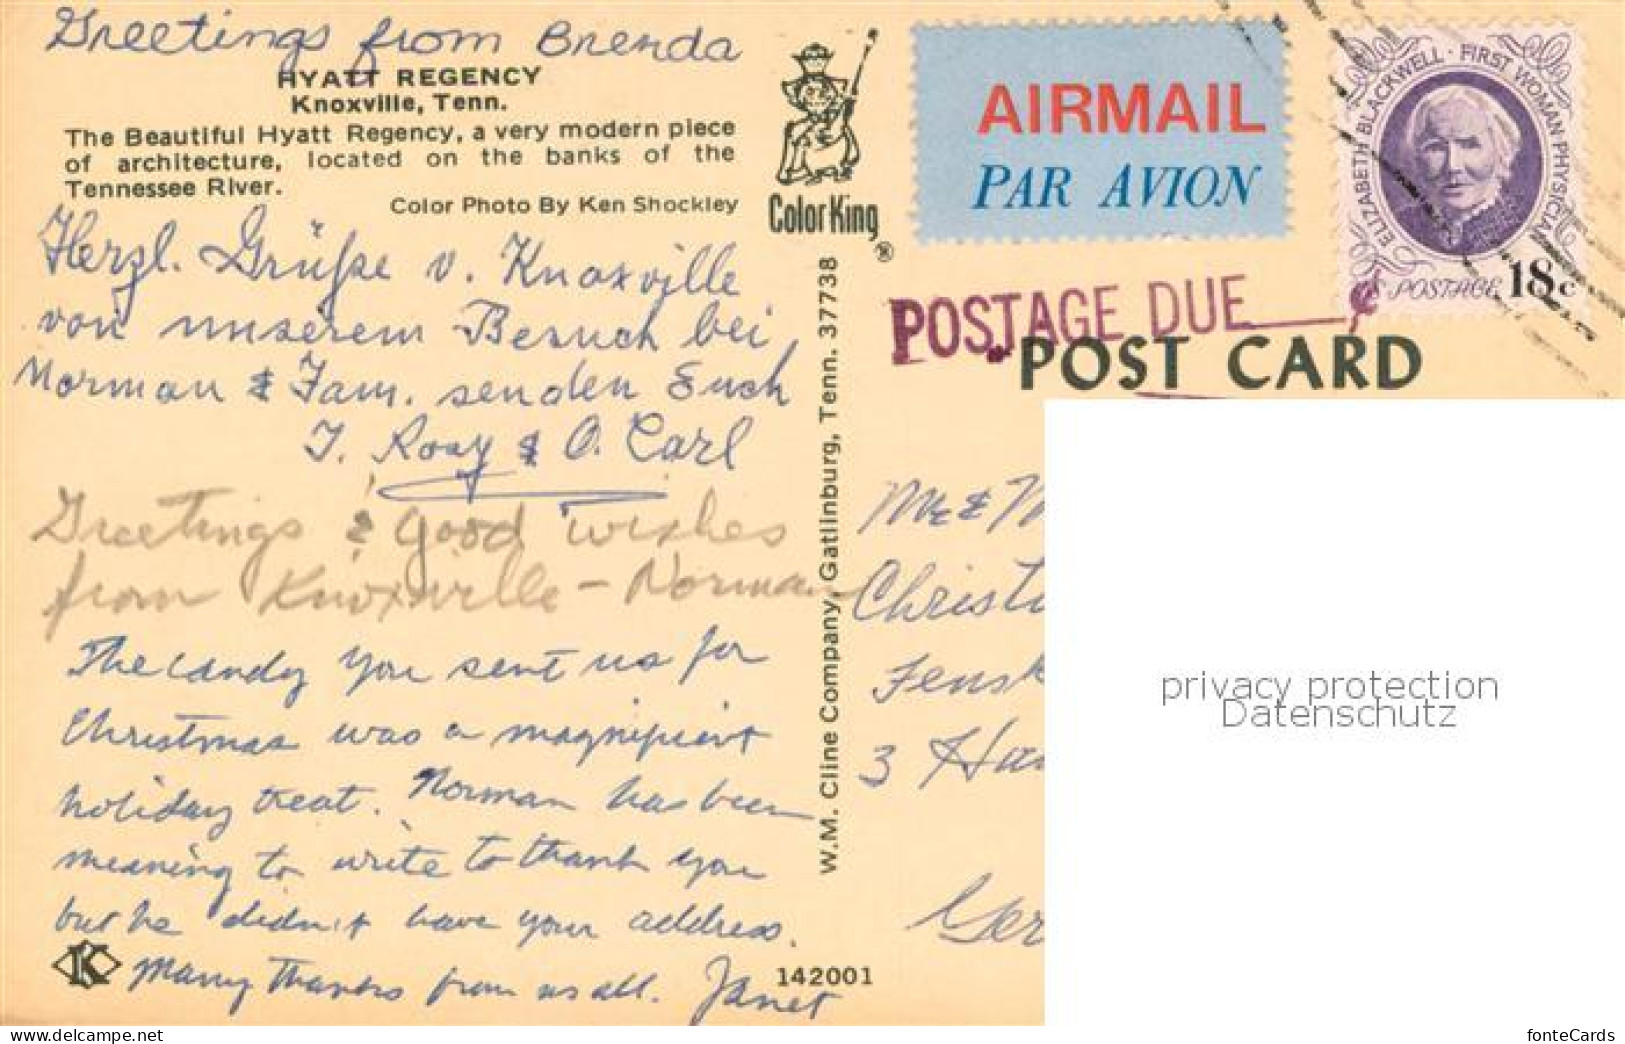 Greetings from Brenda
HYATT REGENCY
Knoxville, Tenn.
The Beautiful Hyatt Regency, a very modern piece
of architecture, located on the banks of the
Tennessee River.
Color Photo By Ken Shockley
Herzl. Grüße v. Knoxville
von unserem Besuch bei
Norman & Fam. senden Euch
T. Rosy & O. Carl
Greetings & Good wishes
from Knoxville - Norman
The candy you sent us for
Christmas was a magnificent
holiday treat. Norman has been
meaning to write to thank you
but he didn't have your address.
Many thanks from us all. Janet
K
142001
Color King
®
W.M. Cline Company, Gatlinburg, Tenn. 37738
AIRMAIL
PAR AVION
ELIZABETH BLACKWELL · FIRST WOMAN PHYSICIAN
US POSTAGE 18c
POSTAGE DUE
POST CARD
Mr & M
Christi
Fensk
3 Han
Ger
privacy protection
Datenschutz
fonteCards